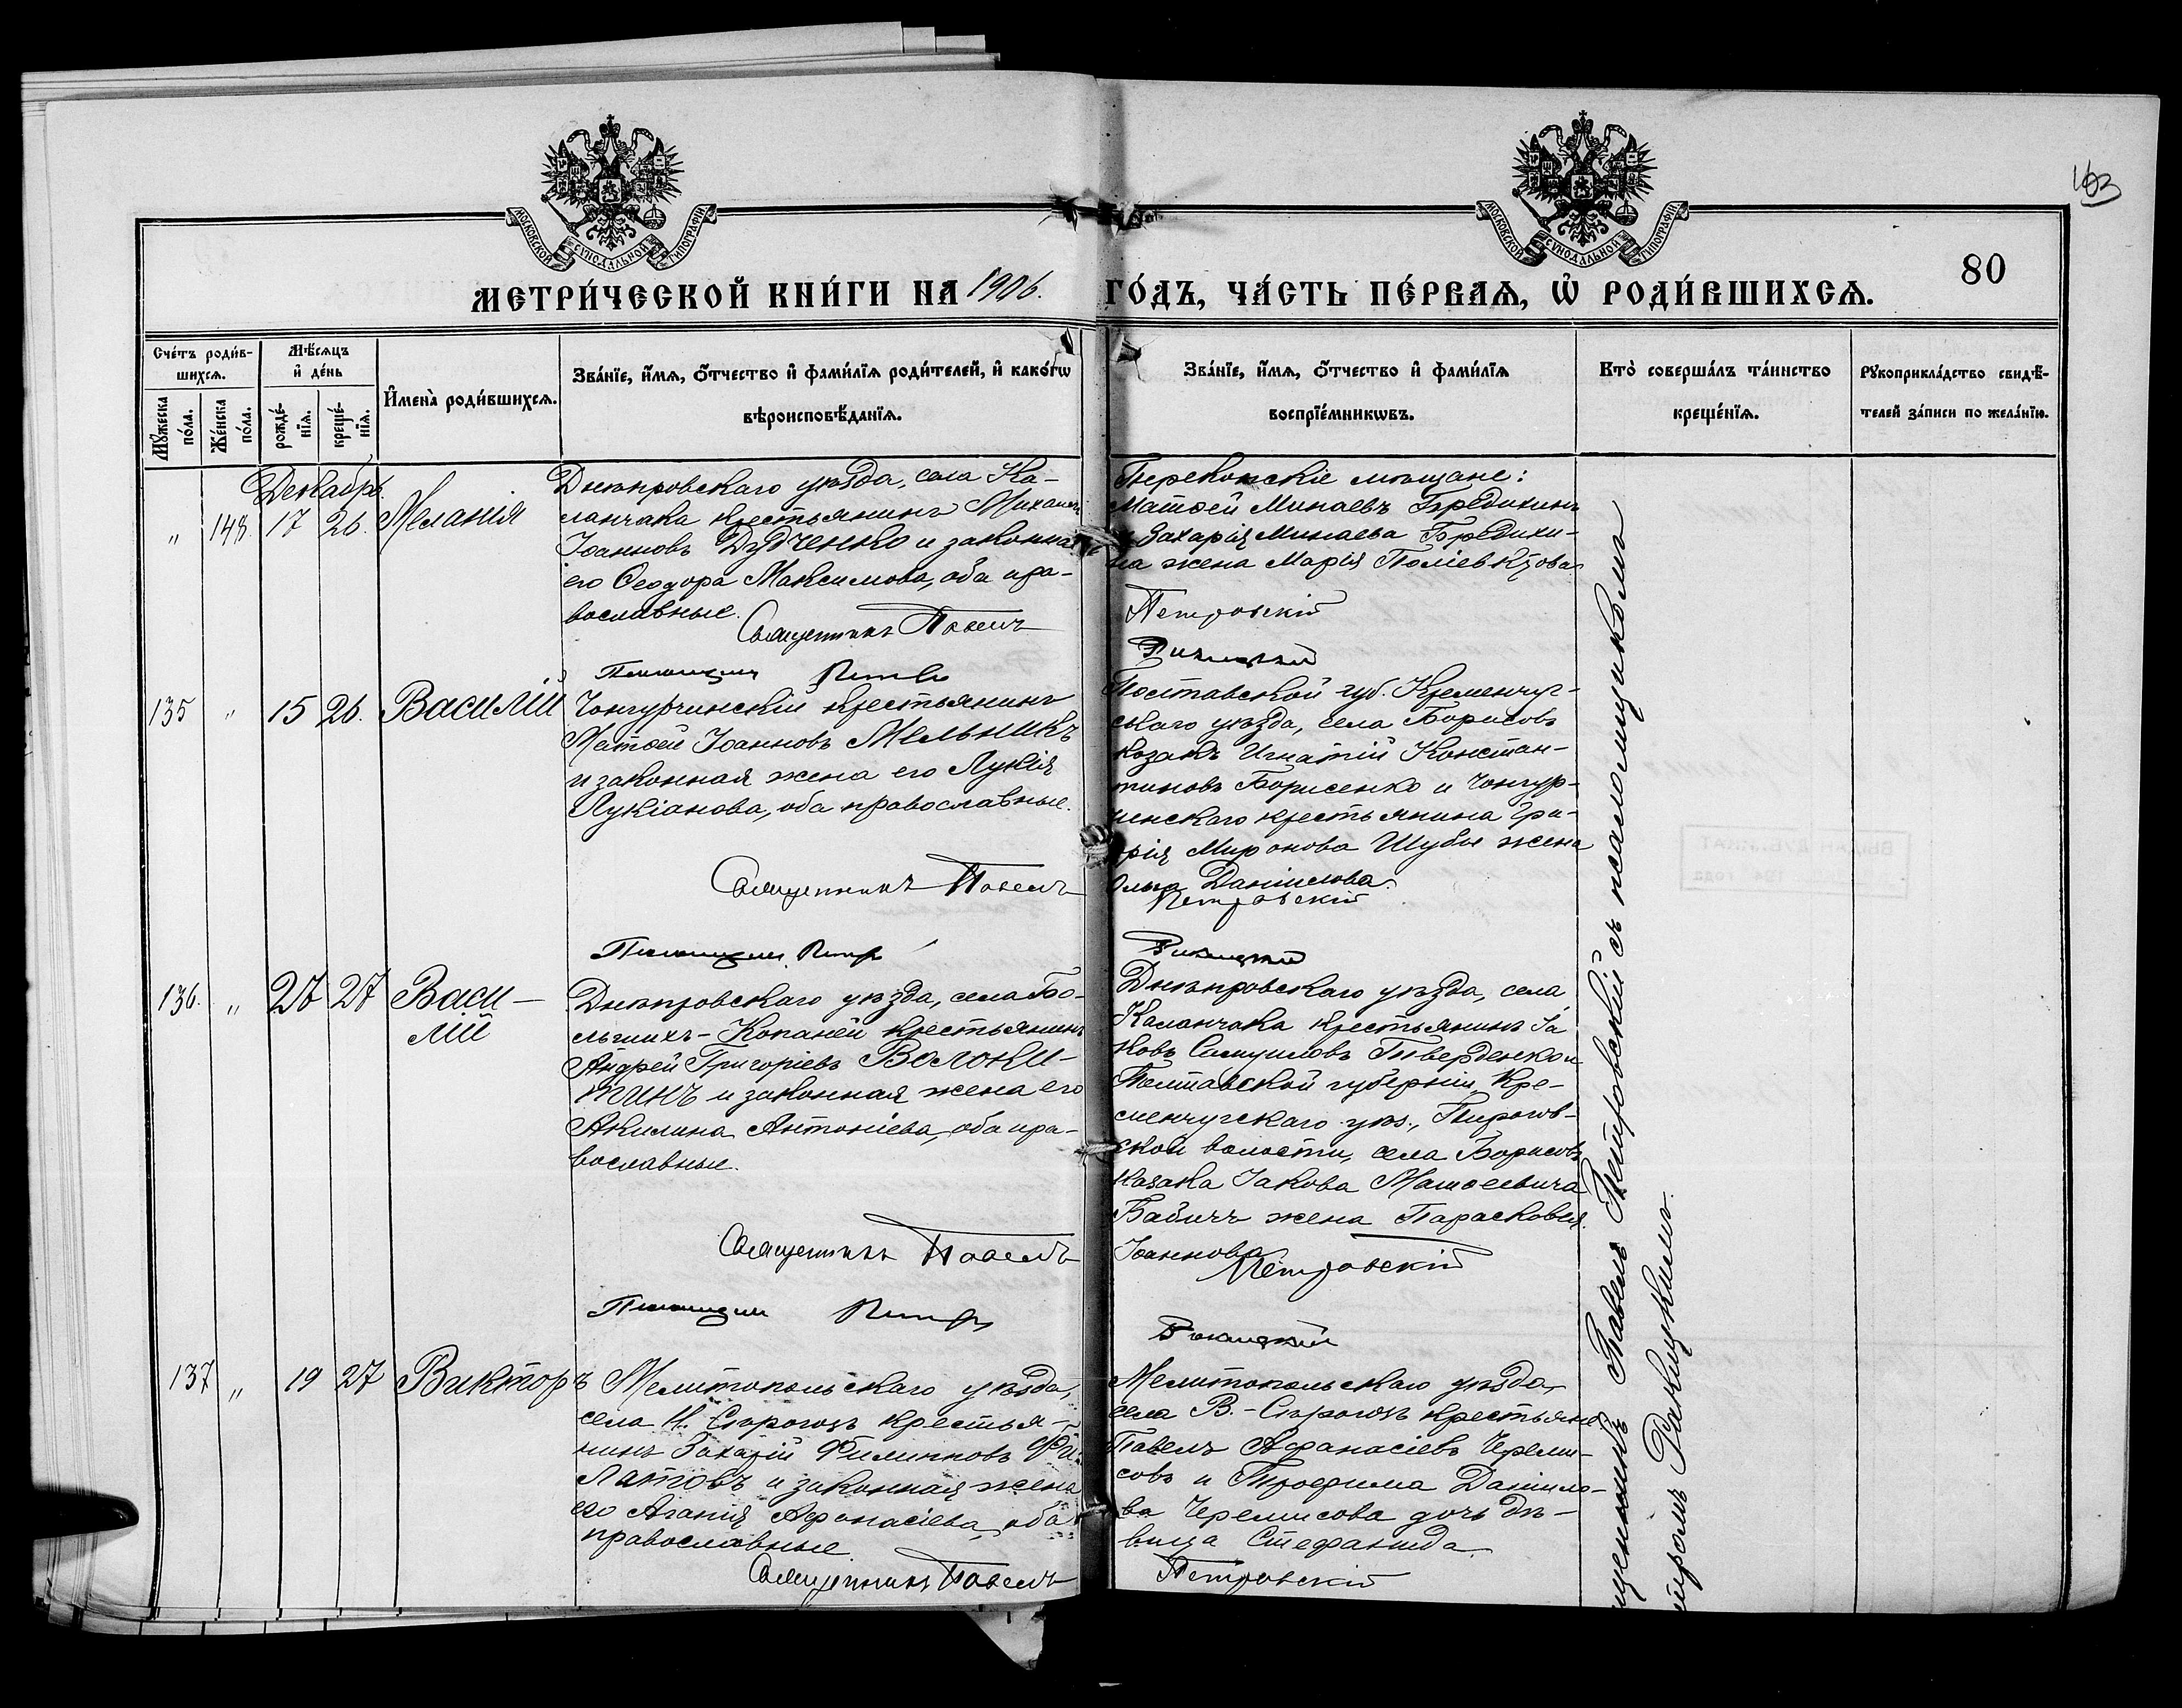 163
МОСКОВСКОЙ СУНОДАЛЬНОЙ ТИПОГРАФІИ
МОСКОВСКОЙ СУНОДАЛЬНОЙ ТИПОГРАФІИ
80
МЕТРИ́ЧЕСКОЙ КНИ́ГИ НА 1906. ГО́ДЪ, ЧА́СТЬ ПЕ́РВАѦ, Ѡ҆ РОДИ́ВШИХСѦ.
Сче́тъ роди́в-
шихсѧ.
Мꙋ́жеска по́ла.
Же́нска по́ла.
Мѣ́сѧцъ
и҆ де́нь
рожде́-
нїѧ.
креще́-
нїѧ.
И҆мена̀ роди́вшихсѧ.
Зва́нїе, и҆́мѧ, ѻ҆́тчество и҆ фами́лїѧ роди́телей, и҆ како́гѡ
вѣроисповѣ́данїѧ.
Зва́нїе, и҆́мѧ, ѻ҆́тчество и҆ фами́лїѧ
воспрїе́мникѡвъ.
Кто̀ соверша́лъ та́инство
креще́нїѧ.
Рꙋкоприкла́дство свидѣ́-
телей за́писи по жела́нїю.
Декабрь
„ 148. 17 26. Меланія
Днѣпровскаго уѣзда, села Ка-
ланчака крестьянинъ Михаилъ
Іоанновъ Дудченко и законная
его Ѳеодора Максимова, оба пра-
вославные.
Священникъ Павелъ
Перекопскіе мѣщане:
Матѳей Минаевъ Бредихинъ
и Захарія Минаева Бредихи-
на жена Марія Поліевктова.
Петровскій
Ракицкій
135 „ 15 26. Василій
Чонгурчинскій крестьянинъ
Матѳей Іоанновъ Мельникъ
и законная жена его Лукія
Лукіанова, оба православные.
Священникъ Павелъ
Полтавской губ. Кременчуг-
скаго уѣзда, села Борисовъ
козакъ Игнатій Констан-
тиновъ Борисенко и Чонгур-
чинскаго крестьянина Гри-
орія Миронова Шубы жена
Ольга Даніилова.
Петровскій
Псаломщикъ Петръ
Ракицкій
136. „ 27 27 Васи-
лій
Днѣпровскаго уѣзда, села Бо-
льшихъ-Копаней крестьянинъ
Андрей Григоріевъ Волоки-
тинъ и законная жена его
Акилина Антоніева, оба пра-
вославные.
Священникъ Павелъ
Днѣпровскаго уѣзда, села
Каланчака крестьянинъ Іа-
ковъ Самуиловъ Тверденко и
Полтавской губерніи, Кре-
менчугскаго уѣз., Пирогов-
ской волости, села Борисовъ
казака Іакова Матѳеевича
Бабичъ жена Парасковія
Іоаннова
Петровскій
Псаломщикъ Петръ
Ракицкій
137 „ 19 27 Викторъ
Мелитопольскаго уѣзда,
села Н. Сѣрогозъ крестья-
нинъ Захарій Филипповъ Фи-
латовъ и законная жена
его Агапія Аѳонасіева, оба
православные.
Священникъ Павелъ
Мелитопольскаго уѣзда,
села В.-Сѣрогозъ крестьяне
Павелъ Аѳанасіевъ Череми-
совъ и Трофима Данило-
ва Черемисова дочь дѣ-
вица Стефанида
Петровскій
щенникъ Павелъ Петровскій съ псаломщикомъ
етромъ Ракицкимъ.